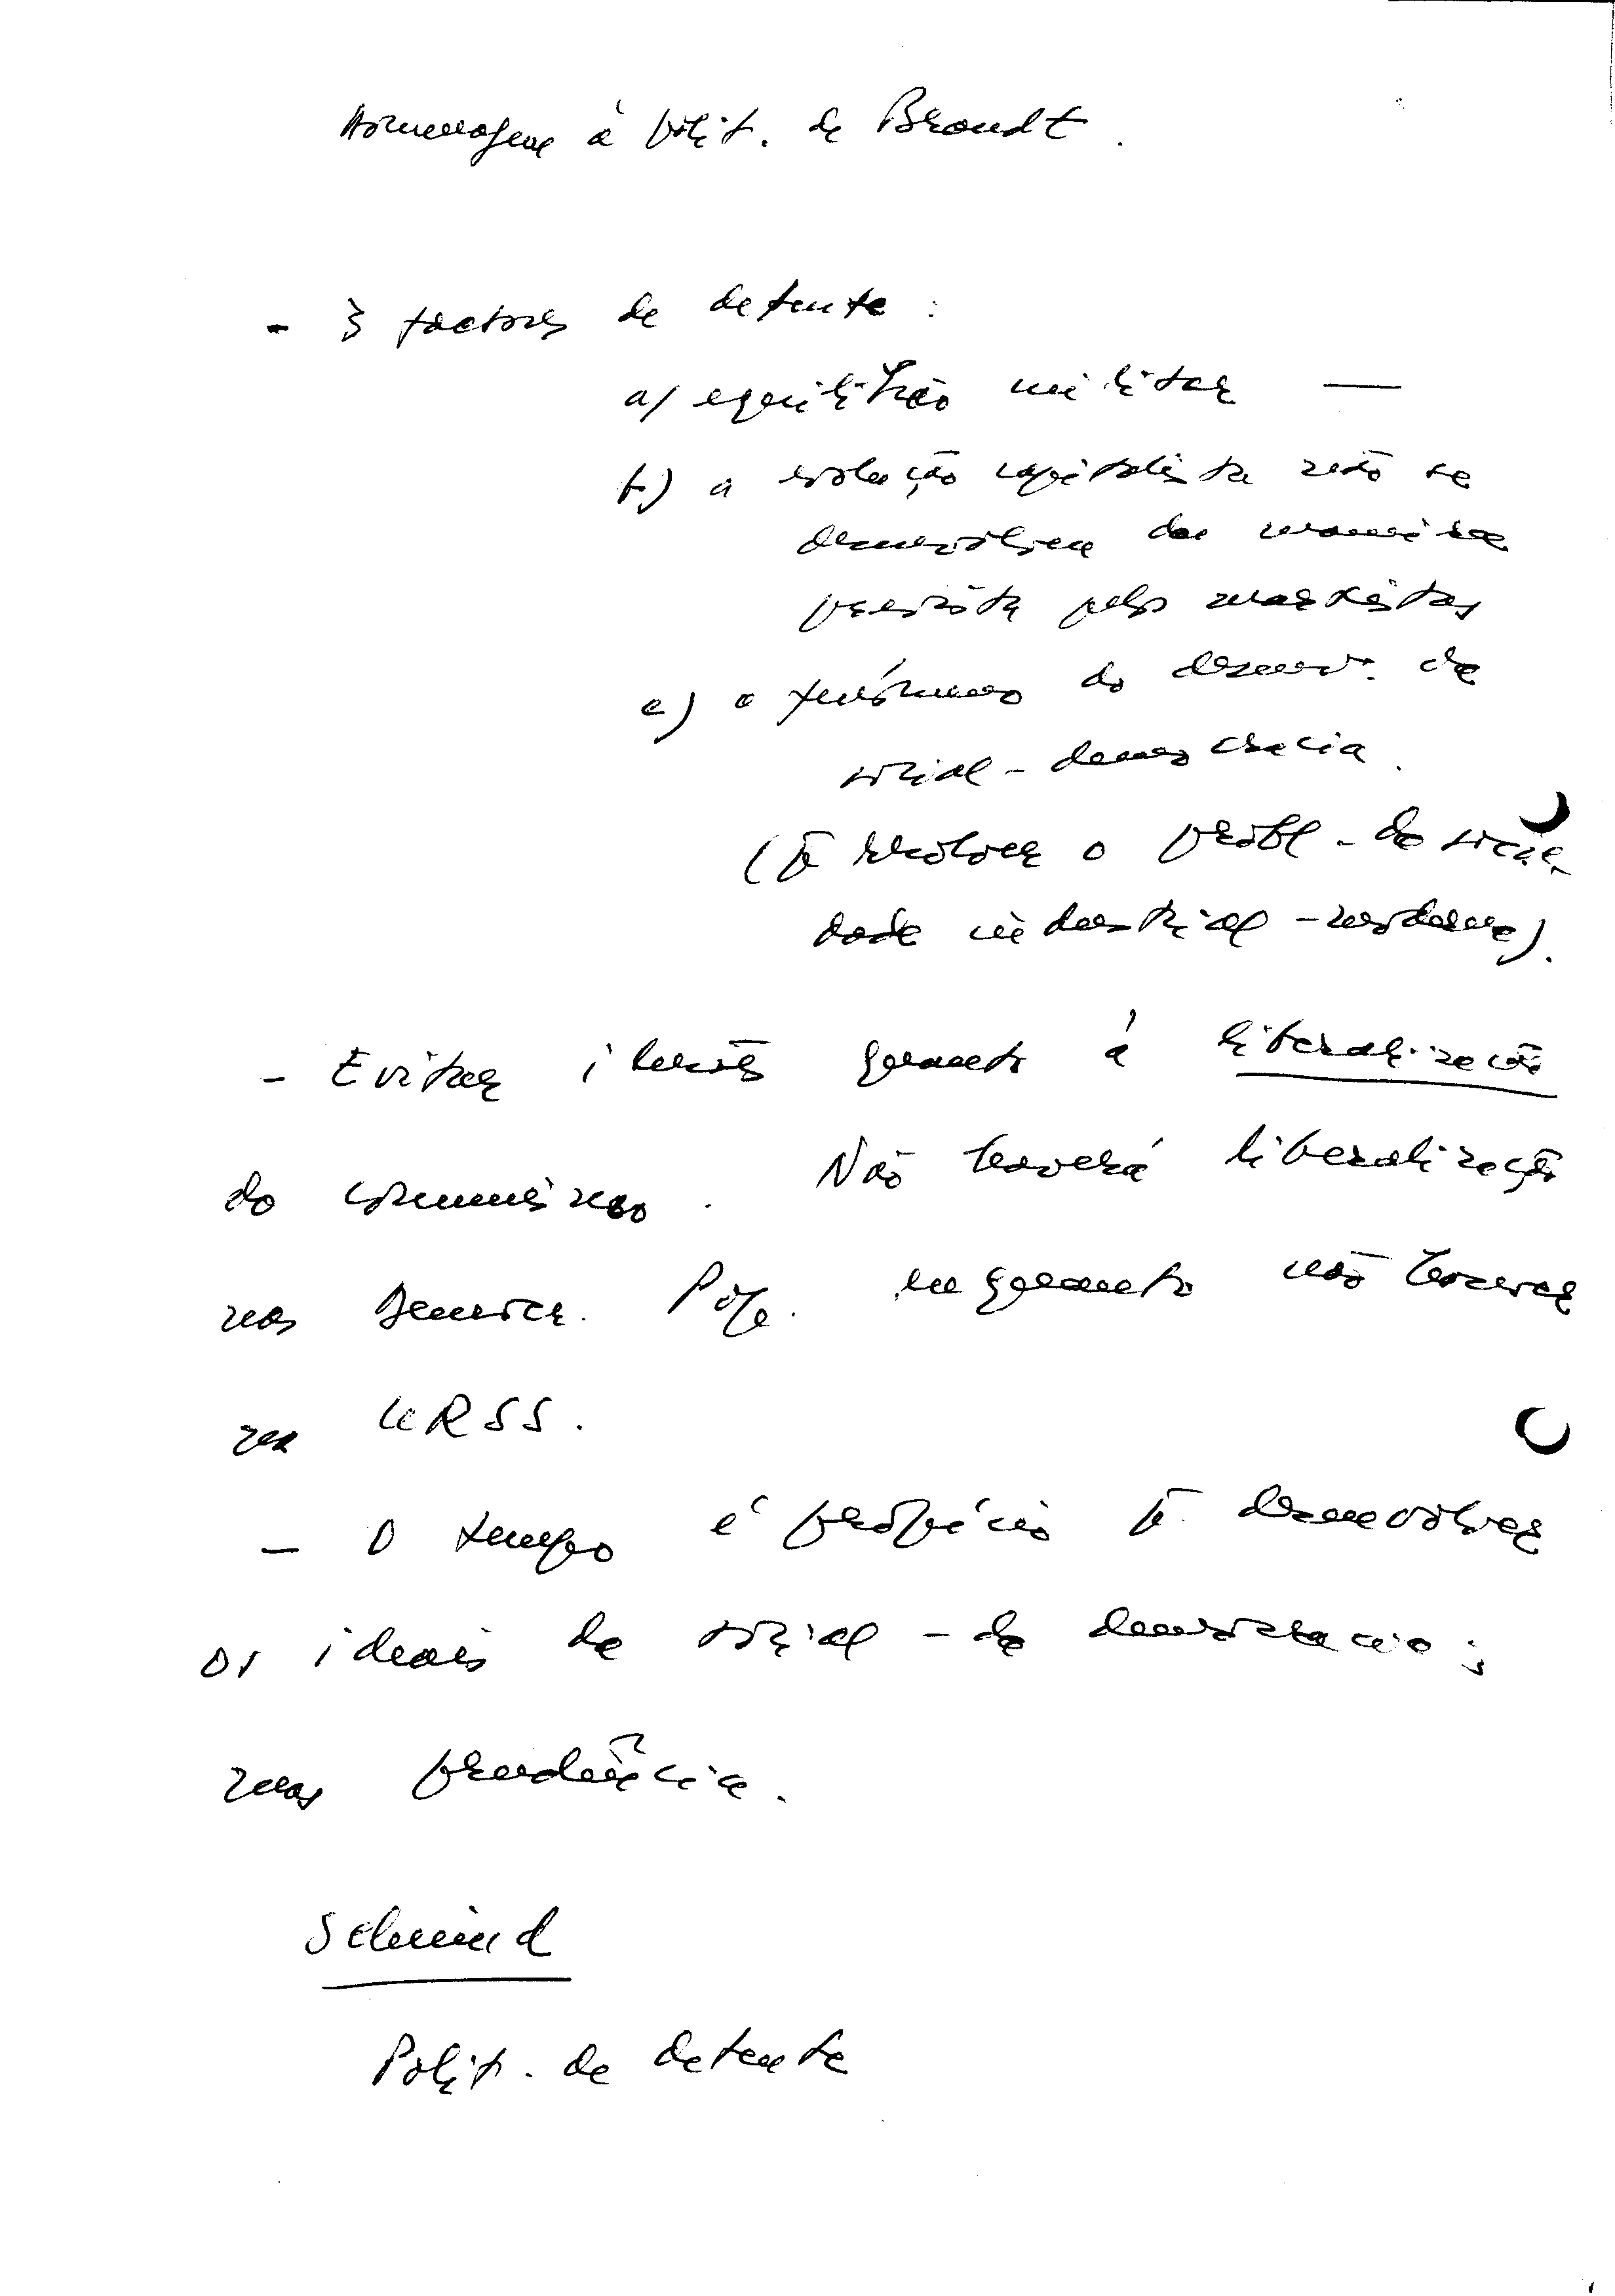 Homenagem à polit. de Brandt.
- 3 factores de detente :
a) equilibrio militar —
b) a evolução capitalista não se
desenvolveu da maneira
prevista pelos marxistas
c) o fenómeno do desenv. da
social-democracia.
(p resolver o probl. da socie-
dade industrial-moderna).
- Evitar ilusões quanto à liberalização
do comunismo. Não haverá liberalização
nas Pq. enquanto não houver
na URSS.
- O tempo é propício p. desenvolver
os ideais da social-da democracia;
mas prudência.
Schmid
Polit. de detente